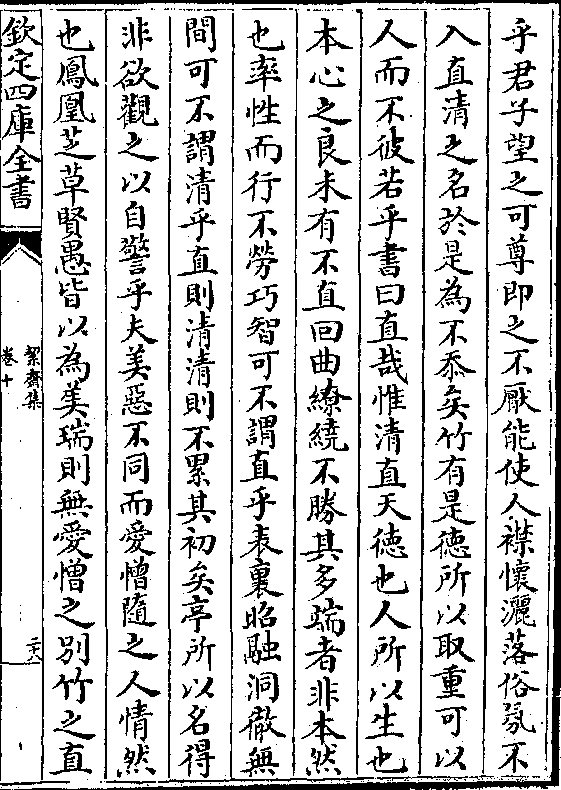 乎君子望之可尊即之不厭能使人襟懷灑落俗氛不
入直清之名於是為不忝矣竹有是徳所以取重可以
人而不彼若乎書曰直哉惟清直天徳也人所以生也
本心之良未有不直回曲繚繞不勝其多端者非本然
也率性而行不勞巧智可不謂直乎表裏昭融洞徹無
間可不謂清乎直則清清則不累其初矣亭所以名得
非欲觀之以自警乎夫美惡不同而愛憎隨之人情然
也鳳凰芝草賢愚皆以為美瑞則無愛憎之别竹之直
欽定四庫全書
絜齋集
卷十
二十八